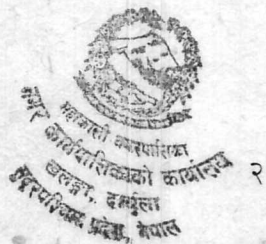 महाकाली नगरपालिका
नगर कार्यपालिकाको कार्यालय
खलङ्गा, दार्चुला
सुदूरपश्चिम प्रदेश, नेपाल
२